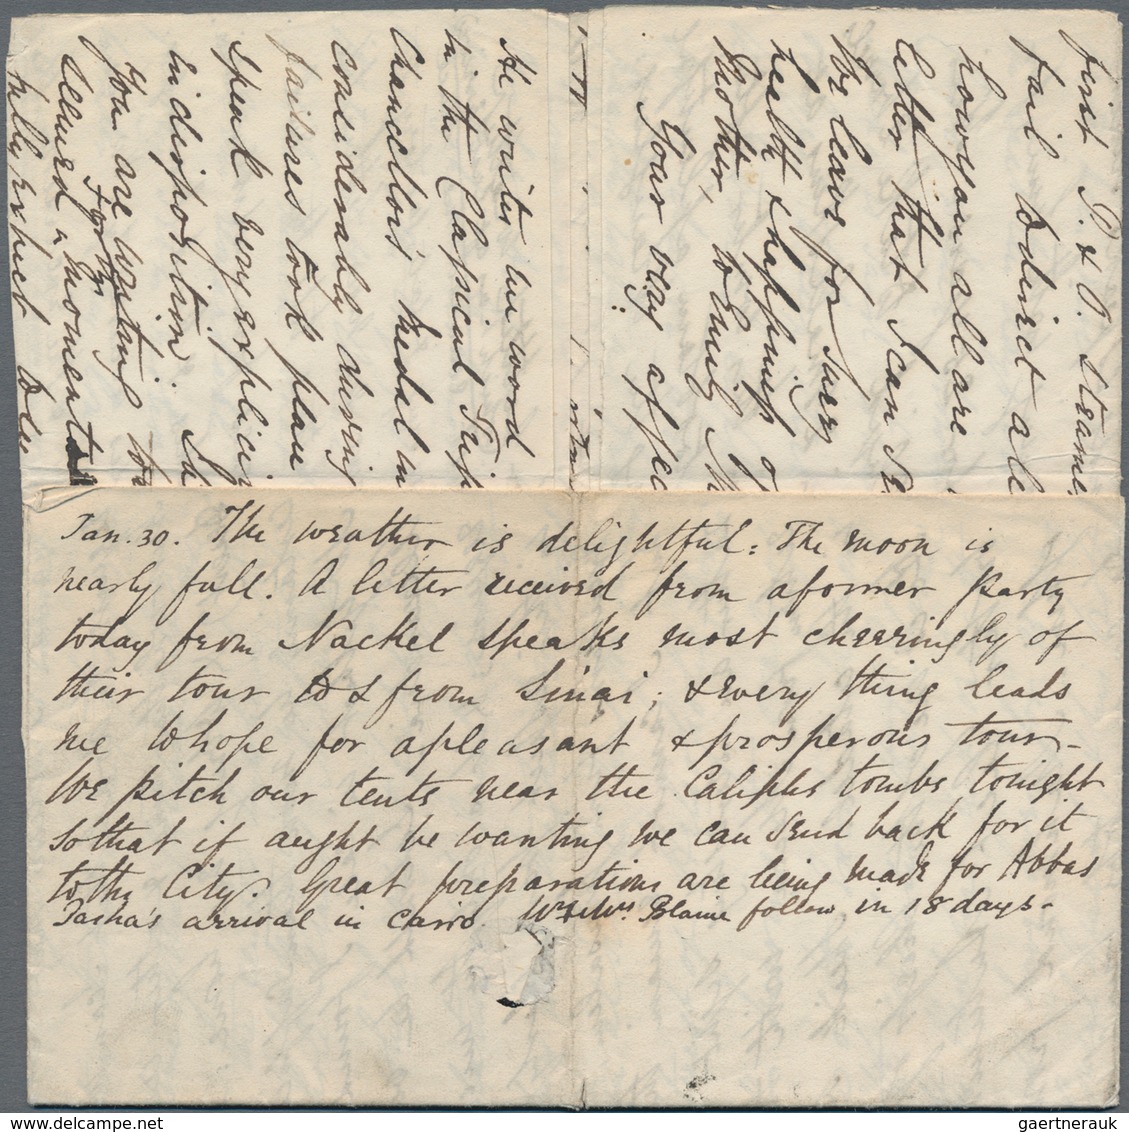 Jan. 30. The weather is delightful. The moon is
nearly full. A letter received from a former party
today from Nackel speaks most cheeringly of
their tour to & from Sinai; & every thing leads
me to hope for a pleasant & prosperous tour -
We pitch our tents near the Caliphs tombs tonight
so that if aught be wanting we can send back for it
to the City. Great preparations are being made for Abbas
Pasha's arrival in Cairo. Mr & Mrs Blaine follow in 18 days -
first P. & O. steame
fail to direct a le
how you all are
letter that I can
leave for Suez
health & happiness o
Mother, to Emily
Your very affec
He writes in word
in the Classical Trip
Chancellor's Medal in
considerably owing
failures took place
speak very explici
indisposition.
You are wanting to
allured a moment
for the
gaertnerauk